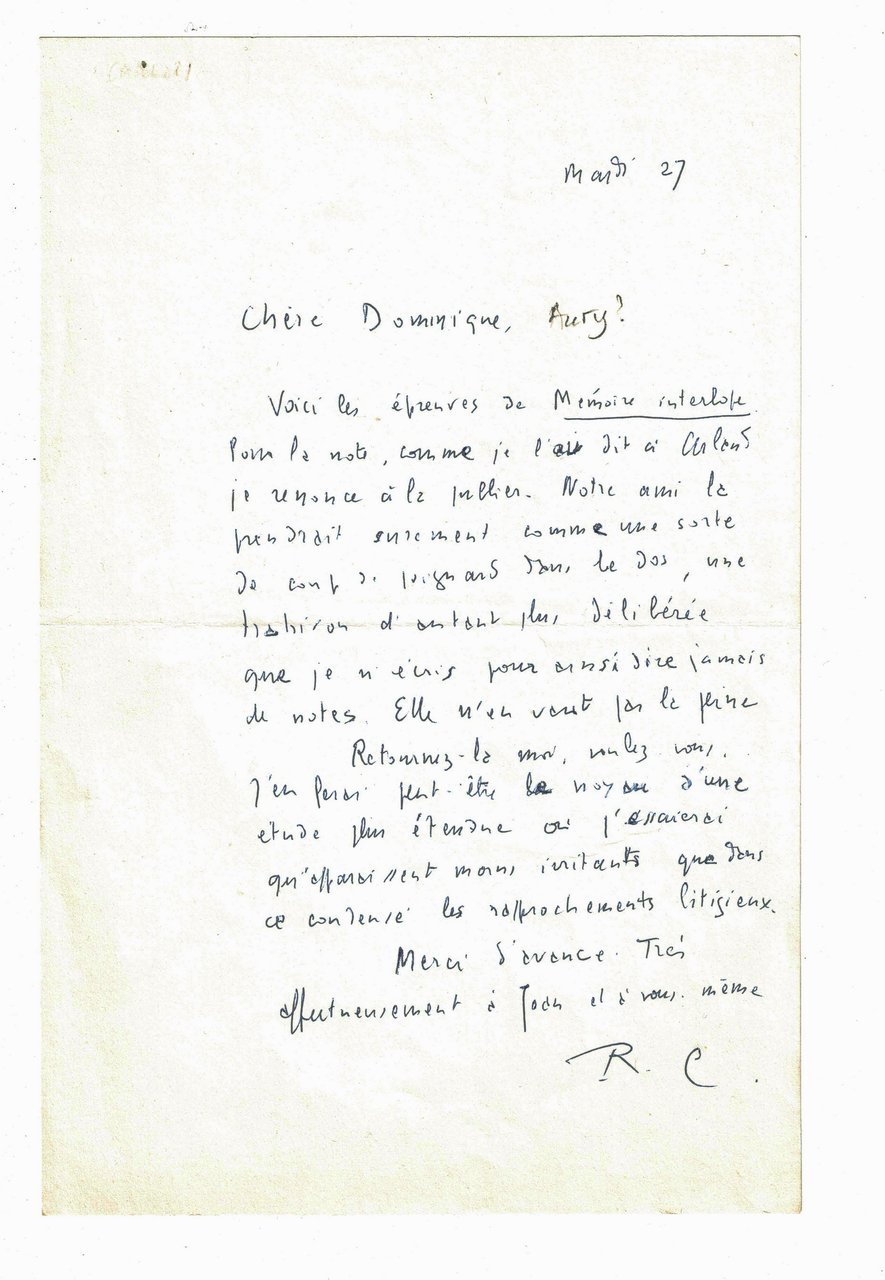 Mardi 27
Chère Dominique, Aury?
Voici les épreuves de Mémoire interlope.
Pour la note, comme je l'ai dit à Arland
je renonce à la publier. Notre ami la
prendrait surement comme une sorte
de coup de poignard dans le dos, une
trahison d'autant plus délibérée
que je n'écris pour ainsi dire jamais
de notes. Elle n'en vaut pas la peine
Retournez-la moi, voulez vous.
J'en ferai peut-être le noyau d'une
étude plus étendue où j'essaierai
qu'apparaissent moins irritants que dans
ce condensé les rapprochements litigieux.
Merci d'avance. Très
affectueusement à Jean et à vous-même
R. C.